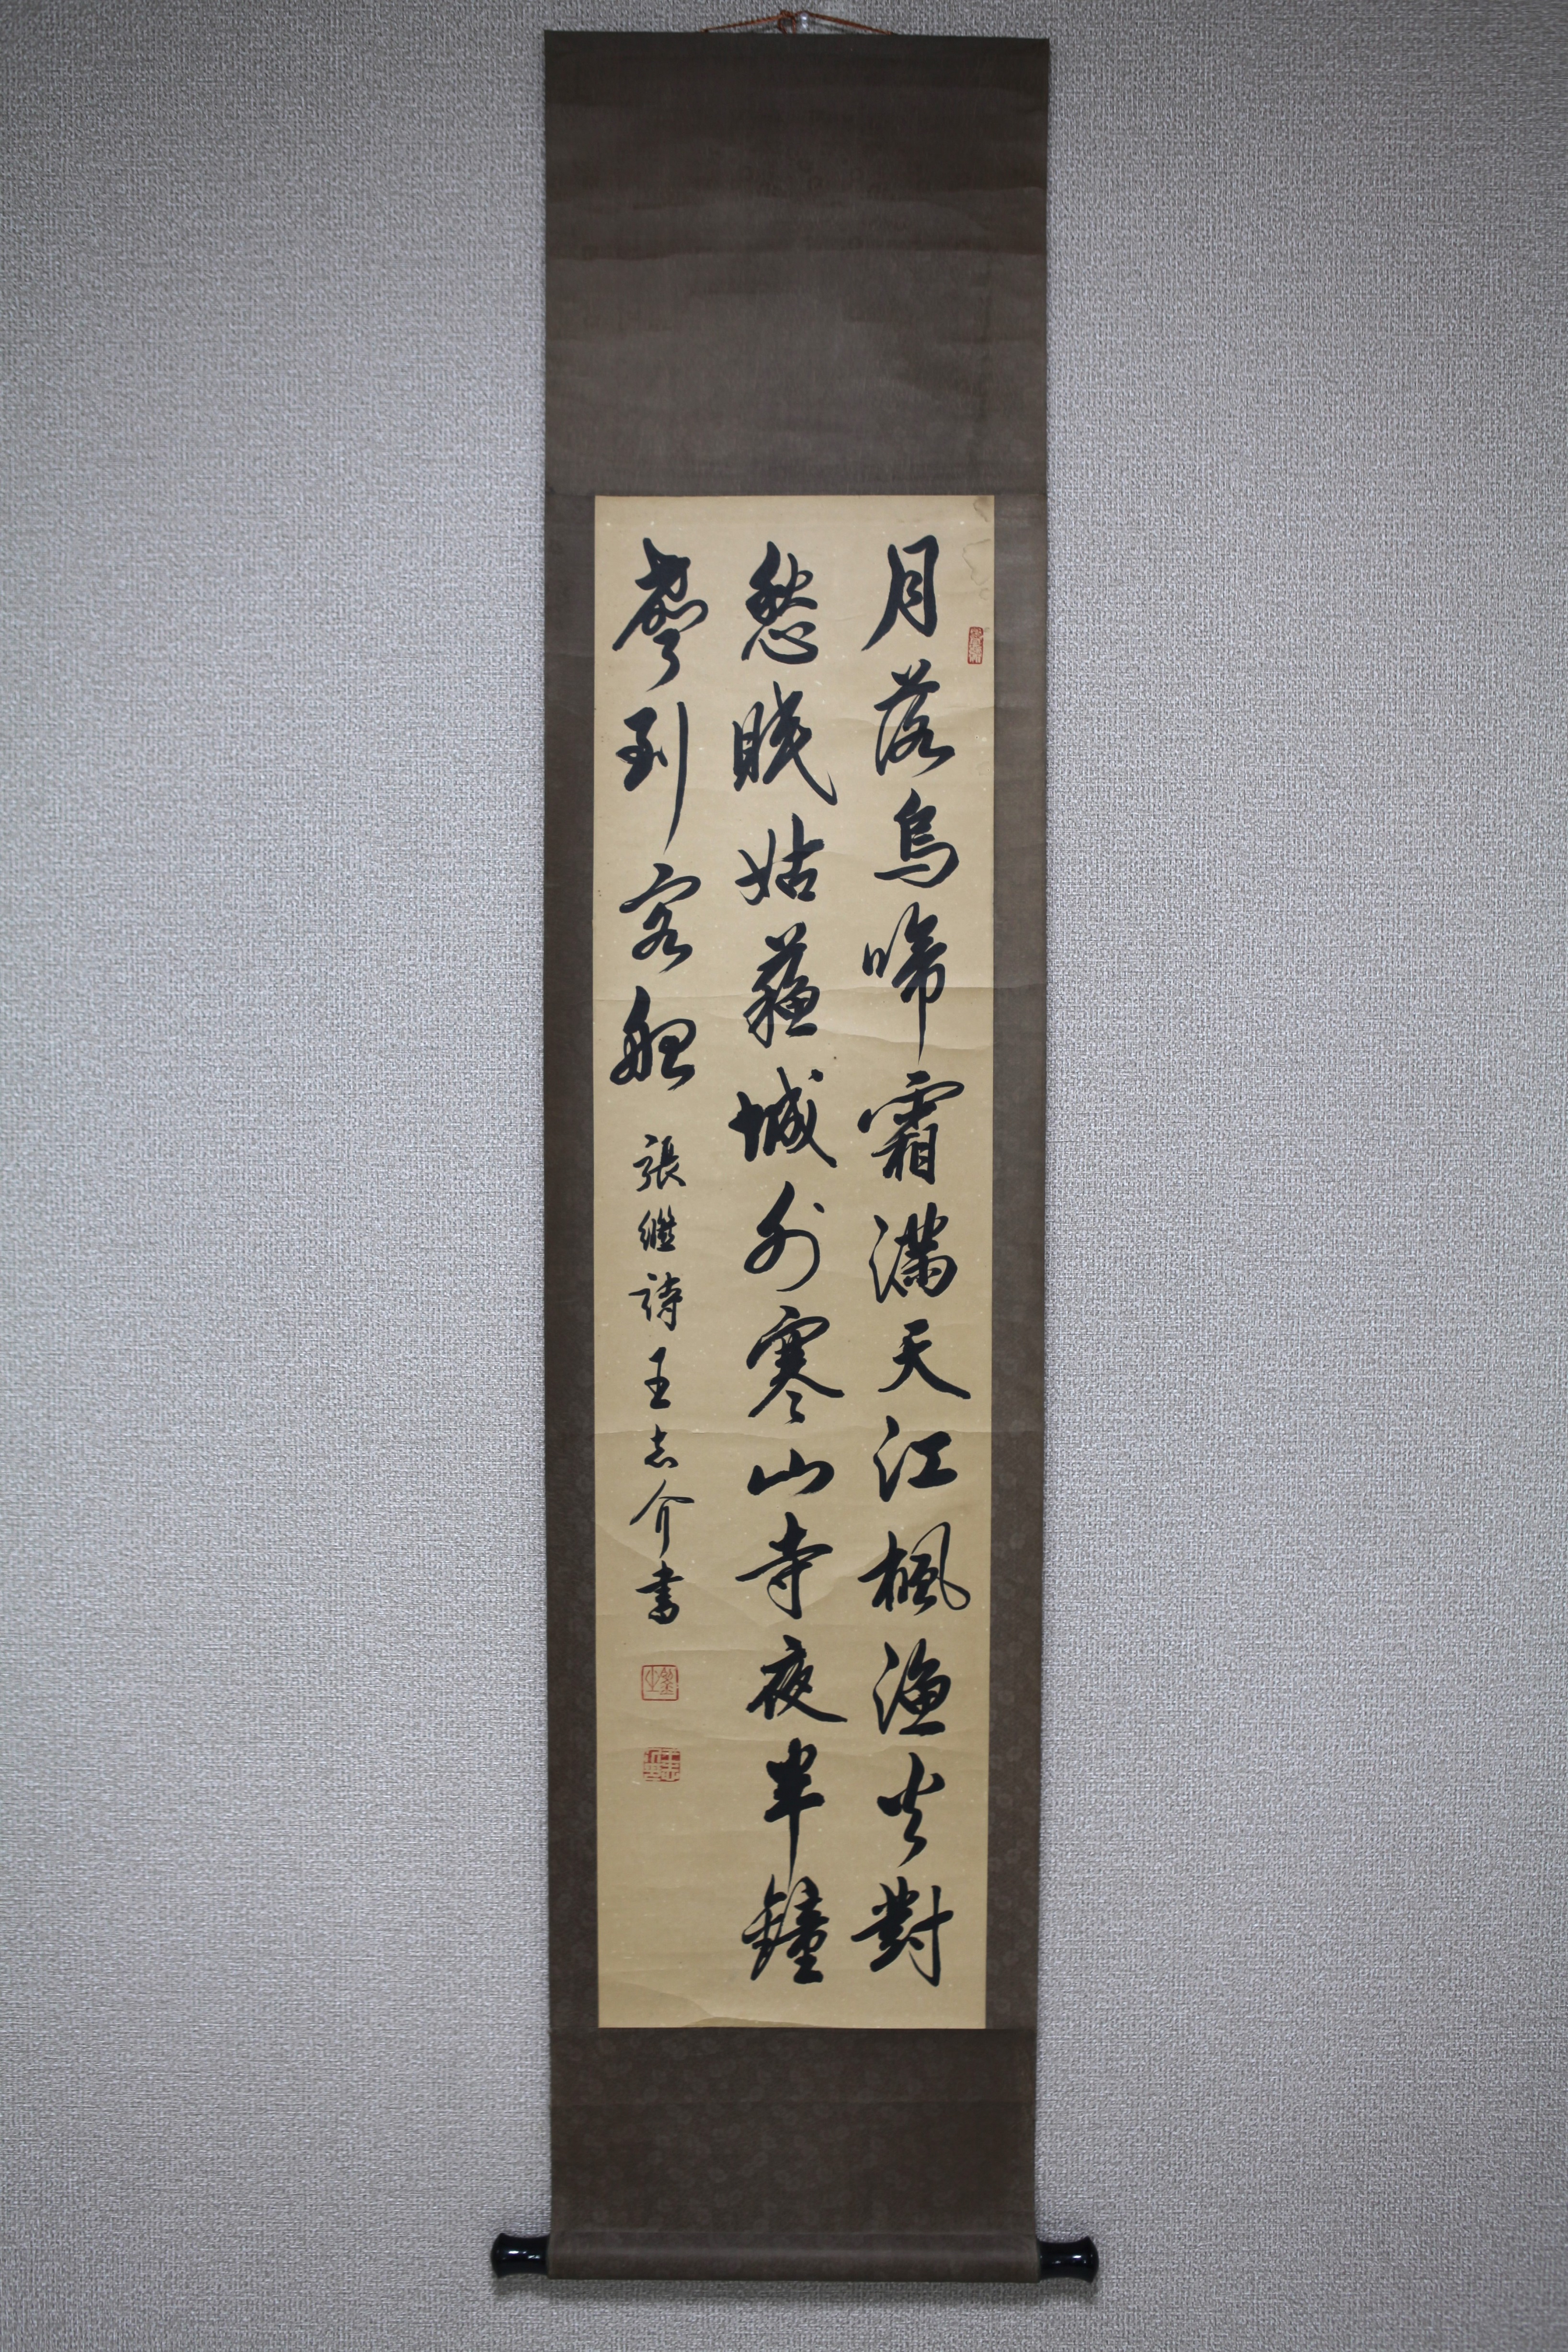 月落烏啼霜滿天江楓漁火對
愁眠姑蘇城外寒山寺夜半鐘
聲到客船 張繼詩王志介書